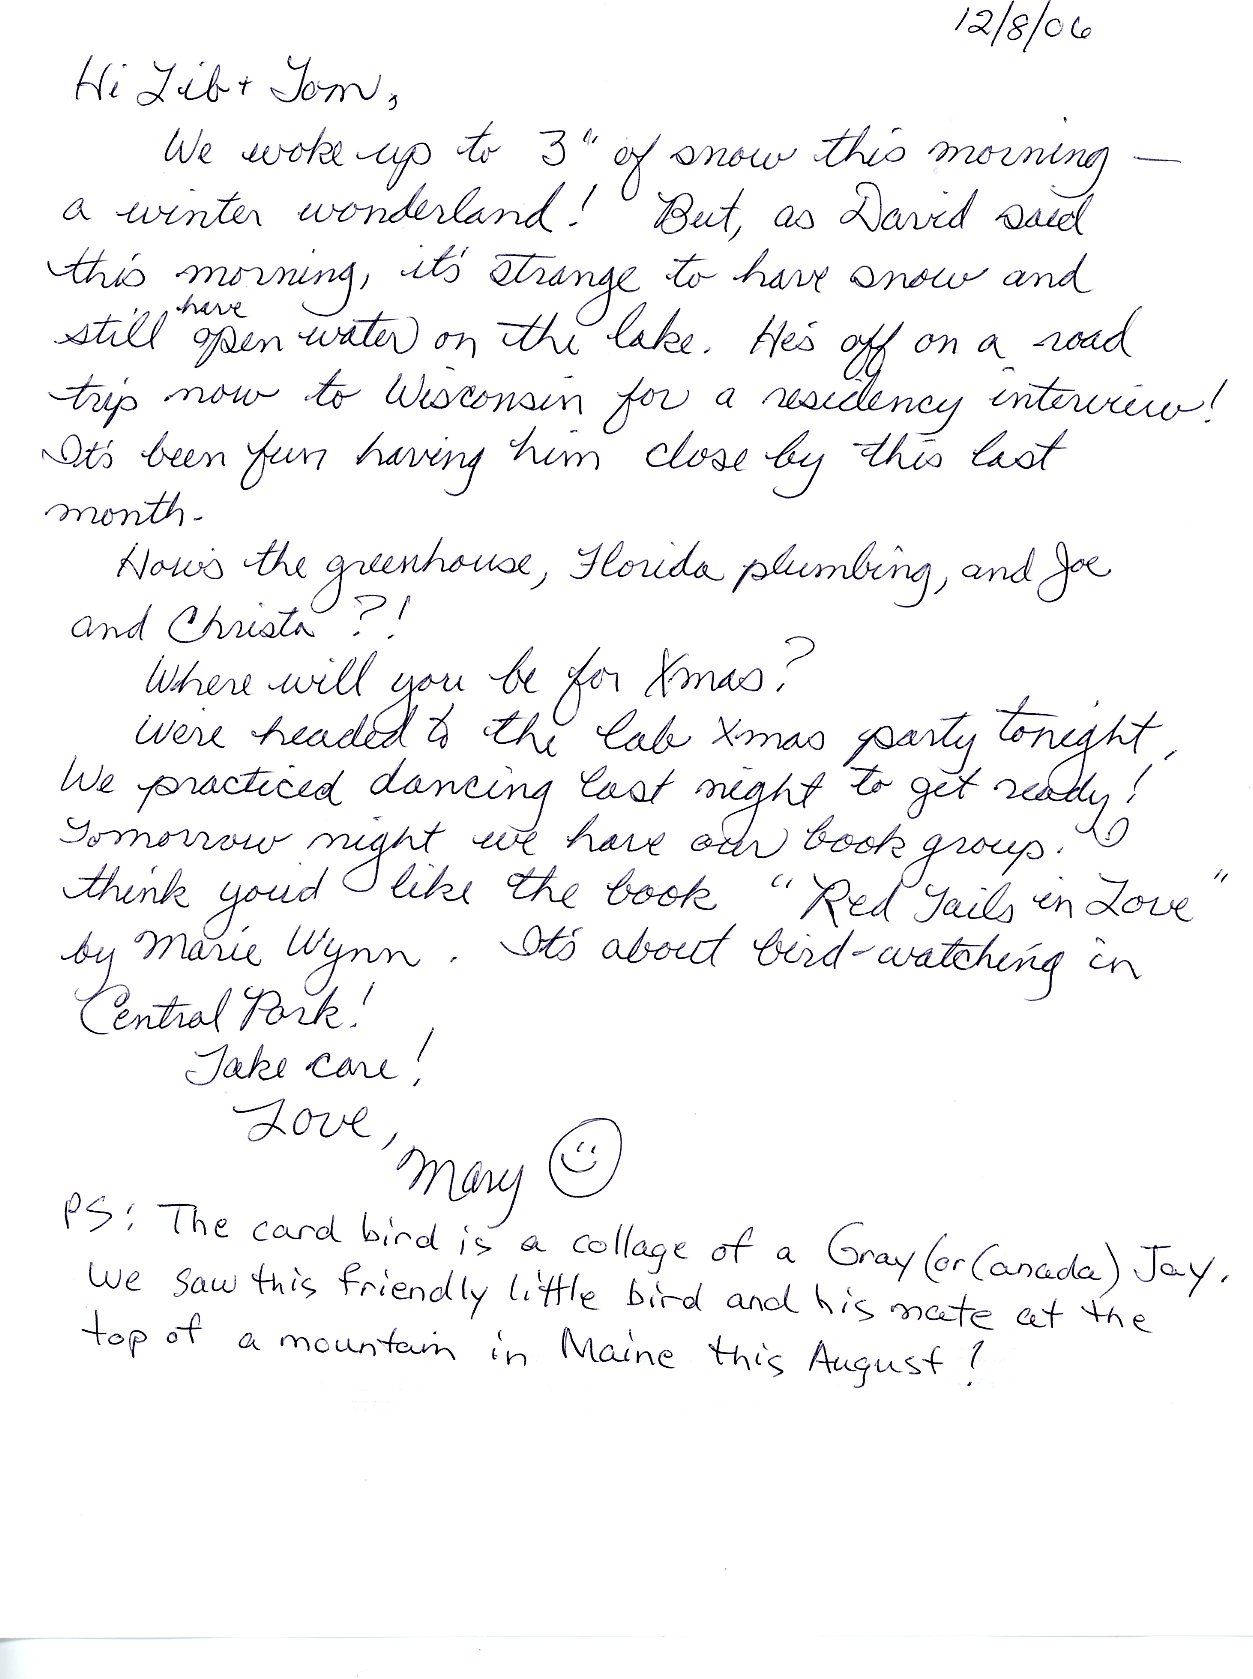 12/8/06
Hi Lib + Tom,
We woke up to 3" of snow this morning —
a winter wonderland! But, as David said
this morning, it's strange to have snow and
still have open water on the lake. He's off on a road
trip now to Wisconsin for a residency interview!
It's been fun having him close by this last
month.
How's the greenhouse, Florida plumbing, and Joe
and Christa?!
Where will you be for Xmas?
We're headed to the lab Xmas party tonight.
We practiced dancing last night to get ready!
Tomorrow night we have our book group. I
think you'd like the book "Red Tails in Love"
by Marie Wynn. It's about bird-watching in
Central Park!
Take care!
Love,
Mary
PS: The card bird is a collage of a Gray (or Canada) Jay.
We saw this friendly little bird and his mate at the
top of a mountain in Maine this August!